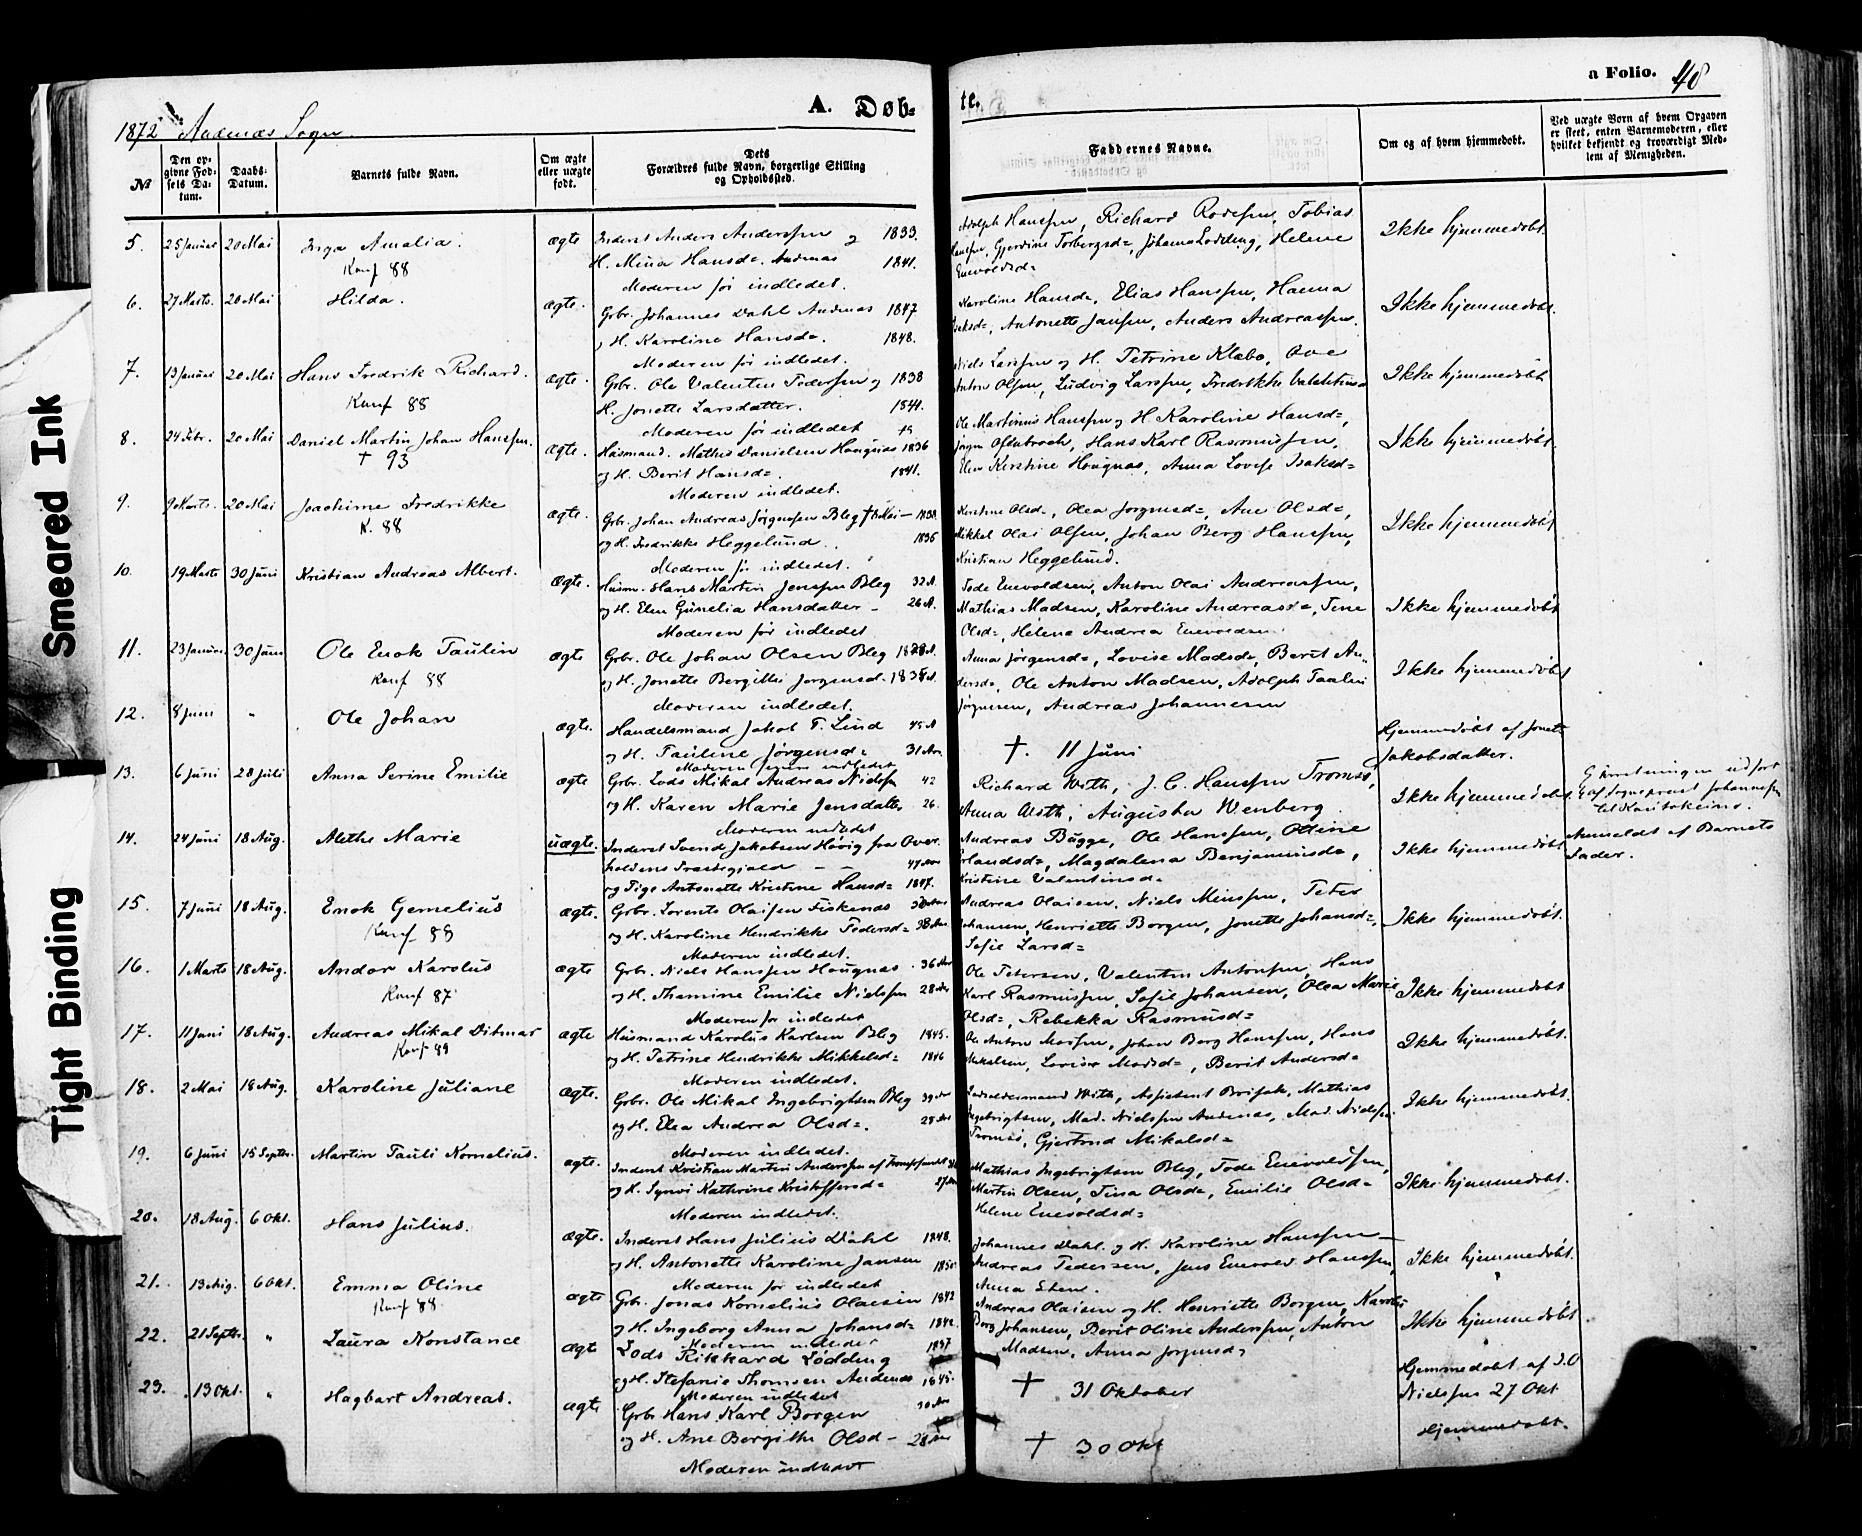 a Folio. 48
A. Døb-
te.
1872 Andenæs Sogn.
№
Den op-
givne Fød-
sels Da-
tum.
Daabs-
Datum.
Barnets fulde Navn.
Om ægte
eller uægte
født.
Dets
Forældres fulde Navn, borgerlige Stilling
og Opholdssted.
Faddernes Navne.
Om og af hvem hjemmedøbt.
Ved uægte Børn af hvem Opgaven
er skeet, enten Barnemoderen, eller
hvilket bekjendt og troværdigt Med-
lem af Menigheden.
5. 25 Januar 20 Mai Inga Amalia. ægte Inderst Anders Anderssen og 1833. Adolph Hanssen, Richard Rodesen, Tobias Ikke hjemmedøbt.
Konf 88 H. Mina Hansd=. Andenæs 1841. Hanssen, Gjerdine Torbergsd=, Johanna Lodding, Helene
Moderen før indledet. Enevoldsd=
6. 27 Marts. 20 Mai Hilda. ægte. Gbr. Johannes Dahl Andenæs 1847 Karoline Hansd=, Elias Hanssen, Hanna Ikke hjemmedøbt.
H. Karoline Hansd=. 1848. Isaksd=, Antonette Jansen, Anders Andreassen.
Moderen før indledet.
7. 13 Januar 20 Mai Hans Fredrik Richard. ægte. Gbr. Ole Valentin Pedersen og 1838 Niels Larssen og H. Petrine Klabo, Ove Ikke hjemmedøbt
Konf 88 H. Jonette Larsdatter. 1841. Anton Olsen, Ludvig Larssen, Fredrikke Valentinsd=
Moderen før indledet
8. 24 Febr. 20 Mai Daniel Martin Johan Hanssen. ægte. Husmand. Mathis Danielsen Haugnæs 1836 Ole Martinus Hanssen og H. Karoline Hansd=, Ikke hjemmedøbt.
† 93 og H. Berit Hansd=. 1841. Jørgen Oftebroch, Hans Karl Rasmussen,
Moderen indledet. Elen Kerstine Haugnæs, Anna Lovise Isaksd=
9. 9 Marts. 20 Mai Joachime Fredrikke ægte. Gbr. Johan Andreas Jørgensen Bleg Kerstine Olsd=, Olea Jørgensd=, Ane Olsd=, Ikke hjemmedøbt
K. 88 og H. Fredrikke Heggelund. 1836 Mikkel Olai Olsen, Johan Berg Hanssen,
Moderen før indledet. Kristian Heggelund.
10. 19 Marts 30 Juni Kristian Andreas Albert. ægte. Husm. Hans Martin Jenssen Bleg 32 A. Tode Enevoldsen, Anton Olai Andreassen, Ikke hjemmedøbt
og H. Elen Gunelia Hansdatter - 26 A. Mathias Madsen, Karoline Andreasd=, Tine
Moderen før indledet Olsd=, Helena Andrea Enevoldsen.
11. 23 Januar. 30 Juni Ole Enok Paulin ægte Gbr. Ole Johan Olsen Bleg Anna Jørgensd=, Lovise Madsd=, Berit An- Ikke hjemmedøbt
Konf 88 og H. Jonette Bergitte Jørgensd- 1838 dersd=, Ole Anton Madsen, Adolph Paulin
Moderen indledet. Jørgensen, Andreas Johannesen
12. 8 Juni " Ole Johan ægte. Handelsmand Jakob P. Lind 45 A † 11 Juni Hjemmedøbt af Jonette
og H. Pauline Jørgensd= 31 Aar Jakobsdatter.
13. 6 Juni 28 Juli Anna Serine Emilie ægte Gbr. Lods Mikal Andreas Nielsen 42 Richard With, J. C. Hanssen Tromsø, Ikke hjemmedøbt Forretningen udført
og H. Karen Marie Jensdatter 26. Anna With, Augusta Wenberg af Sognepræst Johannesen
Moderen indledet til Kautokeino.
14. 24 Juni 18 Aug. Alethe Marie uægte. Inderst Svend Jakobsen Høvig fra Over- Andreas Bugge, Ole Hanssen, Oline Ikke hjemmedøbt Anmeldt af Barnets
holdens Præstegjeld - 47 Aar Erlandsd=, Magdalena Benjaminsd=, Fader.
og Pige Antonette Kristine Hansd= 1847. Kristine Valentinsd=
15. 7 Juni 18 Aug. Enok Gemelius ægte. Gbr. Lorents Olaisen Fiskenæs Andreas Olaisen, Niels Minssen, Peter Ikke hjemmedøbt.
Konf 88 og H. Karoline Hendrikke Pedersd= 38 Aar Johansen, Henriette Borgen, Jonette Johansd=,
Moderen indledet. Sofie Larsd=
16. 1 Marts 18 Aug. Andor Karolus ægte Gbr. Niels Hanssen Haugnæs. 36 Aar Ole Petersen, Valentin Antonsen, Hans Ikke hjemmedøbt
Konf 87 og H. Thamine Emilie Nielssen 28 Aar Karl Rasmussen, Sofie Johansen, Olea Marie
Moderen før indledet Olsd=, Rebekka Rasmusd=
17. 11 Juni 18 Aug. Andreas Mikal Ditmar ægte Husmand Karolus Karlsen Bleg 1845. Ole Anton Morsen, Johan Borg Hanssen, Hans Ikke hjemmedøbt.
Konf 89 og H. Petrine Hendrikke Mikkelsd= 1846 Mikalsen, Lovise Madsd=, Berit Andersd=
Moderen indledet.
18. 2 Mai 18 Aug. Karoline Juliane ægte. Gbr. Ole Mikal Ingebrigtsen Bleg 39 Aar With, Assistent Brisak, Mathias Ikke hjemmedøbt.
og H. Elea Andrea Olsd=. 28 Aar Ingebrigtsen, Mad. Nielssen Andenæs, Mad. Nielssen
Moderen indledet. Tromsø, Gjertrud Mikalsd=
19. 6 Juni 15 Septr. Martin Pauli Kornelius. ægte. Inderst Kristian Martin Anderssen af Mathias Ingebrigtsen Bleg, Tode Enevoldsen, Ikke hjemmedøbt.
og H. Synøi Kathrine Kristoffersd= Martin Olsen, Tina Olsd=, Emilie Olsd=
Moderen indledet. Helene Enevoldsd=
20. 18 Aug. 6 Okt. Hans Julius. ægte. Inderst Hans Julius Dahl 1848. Johannes Dahl. og H. Karoline Hanssen Ikke hjemmedøbt.
og H. Antonette Karoline Jansen 1850 Andreas Pedersen, Jens Enevold Hanssen,
Moderen før indledet Anna Steen.
21. 13 Aug. 6 Okt. Emma Oline ægte Gbr. Jonas Kornelius Olaisen 1842 Andreas Olaisen og H. Henriette Borgen, Karolus Ikke hjemmedøbt
Konf 88. og H. Ingeborg Anna Johansd= 1842. Borg Johansen, Berit Oline Anderssen, Anton
Moderen indledet Madsen, Anna Jørgensd=
22. 21 Septr. " Laura Konstance ægte Lods Rikkard Lødding 1837 † 31 Oktober Hjemmedøbt af I. O
og H. Stefanie Thomsen Andenæs 1845. Nielssen 27 Okt
Moderen indledet
23. 13 Okt. " Hagbart Andreas. ægte Gbr Hans Karl Borgen 30 Aar † 30 Okt Hjemmedøbt.
og H. Ane Bergitte Olsd- 28 Aar
Moderen indledet
Smeared Ink
Tight Binding